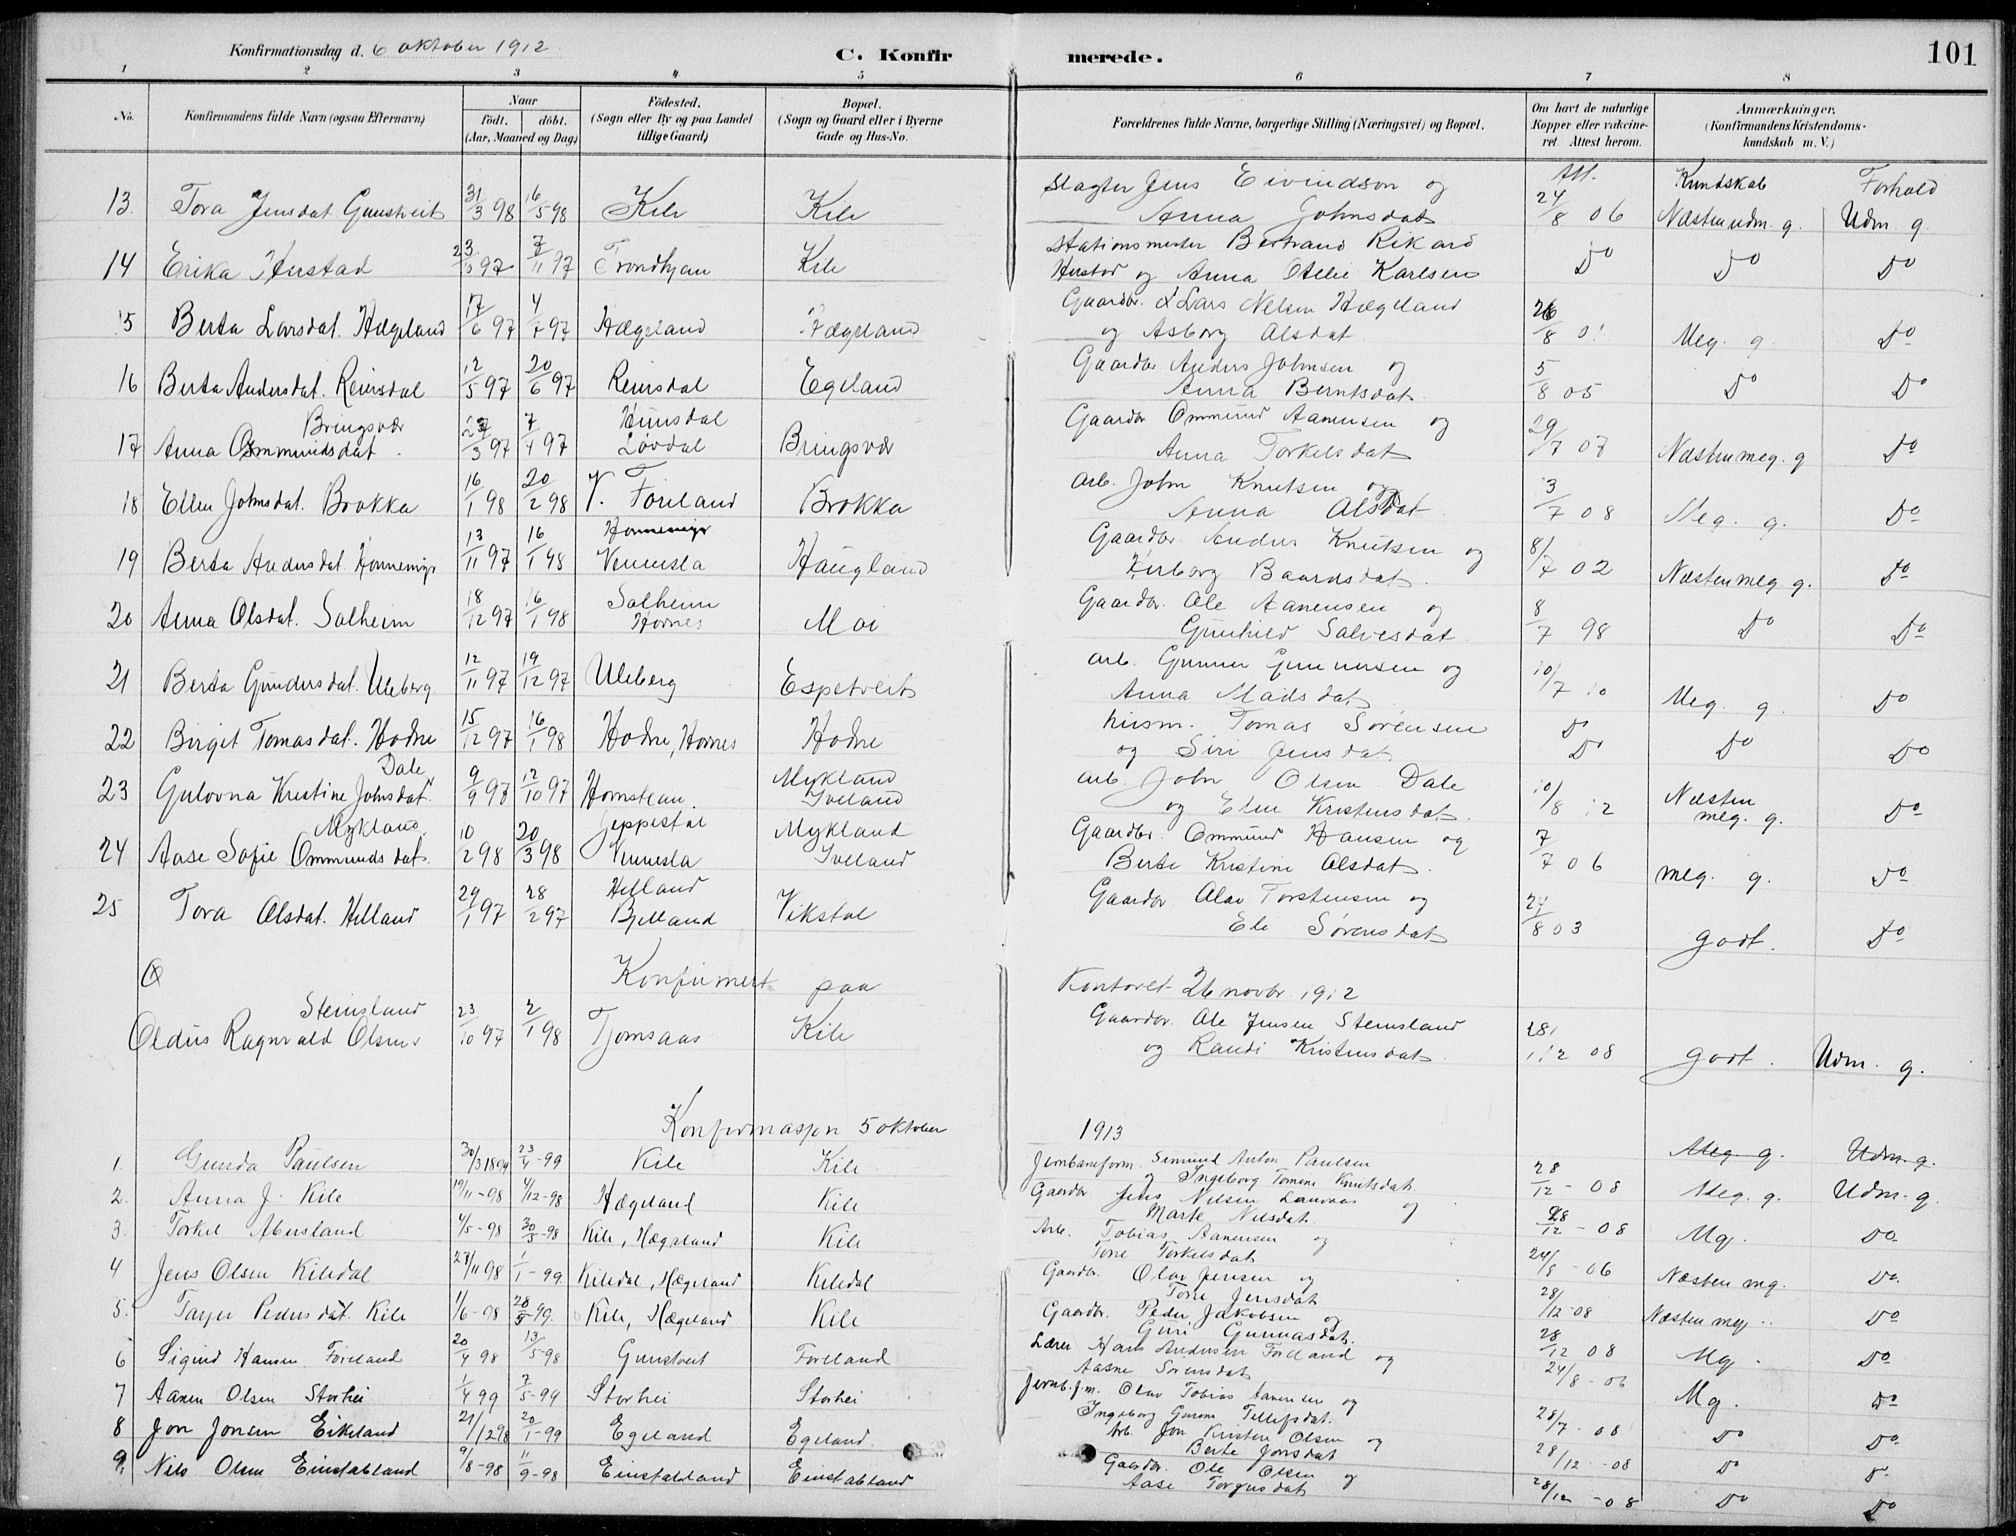 Konfirmationsdag d. 6 oktober 1912.
C. Konfirmerede.
101
1 2 3 4 5 6 7 8
No.
Konfirmandens fulde Navn (ogsaa Efternavn)
Naar
födt. döbt.
(Aar, Maaned og Dag)
Födested.
(Sogn eller By og paa Landet tillige Gaard)
Bopæl.
(Sogn og Gaard eller i Byerne Gade og Hus-No.
Forældrenes fulde Navne, borgerlige Stilling (Næringsvei) og Bopæl.
Om havt de naturlige Kopper eller vakcineret Attest herom.
Anmærkninger.
(Konfirmandens Kristendomskundskab m. V.)
Att. Kundskab Forhold
13. Tora Jensdat. Gunstveit 31/3 98 16/5 98 Kile Kile Slagter Jens Eivindson og Anna Johnsdat 24/8 06 Næsten udm. g. Udm. g
14 Erika Hustad 97 7/11 97 Trondhjem Kile Stationsmester Bertrand Rikard Hustad og Anna Otelie Karlsen Do Do Do
15 Berta Larsdat. Hægeland 17/6 97 4/7 97 Hægeland Hægeland Gaardbr. Lars Nelsen Hægeland og Asborg Olsdat. 26/8 01 Meg. g. Do
16 Berta Andersdat. Reiersdal 12/5 97 20/6 97 Reiersdal Egeland Gaardbr Anders Johnsen og Anna Berntsdat. 5/8 05 Do Do
17 Anna Ommundsdat. Bringsvær 3 97 7/4 97 Løvdal Bringsvær Gaardbr Ommund Aanensen og Anna Torkelsdat 29/7 07 Næsten meg. g Do
18 Ellen Johnsdat. Brokka 16/1 98 20/2 98 V. Føreland Brokka Arb. John Knutsen og Anna Olsdat. 3/7 08 Meg. g. Do
19 Berta Andersdat Honnemyr 13/11 97 16/1 98 Honnemyr Vennesla Haugland Gaardbr. Anders Knutsen og Baardsdat. 8/7 02 Næsten meg. g. Do
20 Anna Olsdat. Solheim 18/12 97 16/1 98 Solheim Hornes Moi Gaardbr. Ole Aanensen og Gunhild Salvesdat 8/7 98 Do Do
21 Berta Gundersdat. Uleberg. 12/11 97 19/12 97 Uleberg Espetveit Arb. Gunner Gunnersen og Anna Madsdat 10/7 10 Meg. g. Do
22 Birgit Tomasdat. Hodne 15/12 97 16/1 98 Hodne, Hornes Hodne Husm. Tomas Sørensen og Siri Jensdat Do Do Do
23 Gulovna Kristine Johnsdat. Dale 9/9 97 12/10 97 Hornsteun. Mykland Iveland Arb. John Olsen Dale og Elen Kristensdat. 10/8 12 Næsten meg. g. Do
24 Aase Sofie Ommundsdat. Mykland 10/2 98 20/3 98 Jeppestøl Vennesla Mykland Iveland Gaardbr. Ommund Hansen og Berte Kristine Olsdat. 7/7 06 meg. g. Do
25 Tora Olsdat. Helland 29/1 97 28/2 97 Helland Bjelland Vikstøl Gaardbr Olav Torstensen og Ele Sørensdat 27/8 03 godt. Do
Konfirmert paa Kontoret 26 novbr. 1912
Oldus Ragnvald Olsen Steinsland 23/10 97 2/1 98 Tjomsaas Kile Gaardbr. Ole Jensen Steinsland og Randi Kristensdat. 28/12 08 godt. Udm. g.
Konfirmasjon 5 oktober 1913
1. Gunda Paulsen 30/3 1899 23/4-99 Kile Kile Jernbaneform. Simund Anton Paulsen og Ingeborg Tomine Knutsdat. 28/12-08 Meg g. Udm. g.
2. Anna J. Kile 19/11-98 4/12-98 Hægeland Kile Gaardbr Jens Nilsen og Marte Nilsdat. 28/12-08 Meg. g. Udm. g.
3. Torkel Abusland 4/5-98 30/5-98 Kile, Hægeland Kile Arb. Tobias Aanensen og Tone Torkelsdat 24/8-06 Mg. Do
4 Jens Olsen Kiledal 27/11 98 1/1-99 Kiledal, Hægeland Kiledal Gaardbr. Olav Jensen og Tone Jensdat 28/12-08 Næsten mg. Do.
5. Tarjer Pedersdat. Kile 1/6-98 28/5-99. Kile, Hægeland Kile Gaardbr. Peder Jakobsen og Guri Gunnasdat. 28/12 08 Næsten meg. Do
6 Sigurd Hansen Føreland 20/4 98 13/5-98 Gunstveit Føreland Lærer Hans Andersen Føreland og Aasne Sørensdat 24/8-06 Mg. Do
7 Aanen Olsen Storhei 1/4 99 7/5-99 Storhei Storhei Jernb.f.m. Olav Tobias Aanensen og Ingeborg Gurine Tellefsdat. 28/7-08 Mg. Do
8 Jon Jonsen Eikeland 21/12 98 20/1-99 Egeland Egeland. Arb. Jon Kristen Olsen og Berte Jonsdat 28/12-08 Do Do
9. Nils Olsen Einstabland 9/8-98 11/9-98 Einstabland Einstabland Gaardbr. Ole Olsen og Aase Torgusdat 28/12-08 Do Do